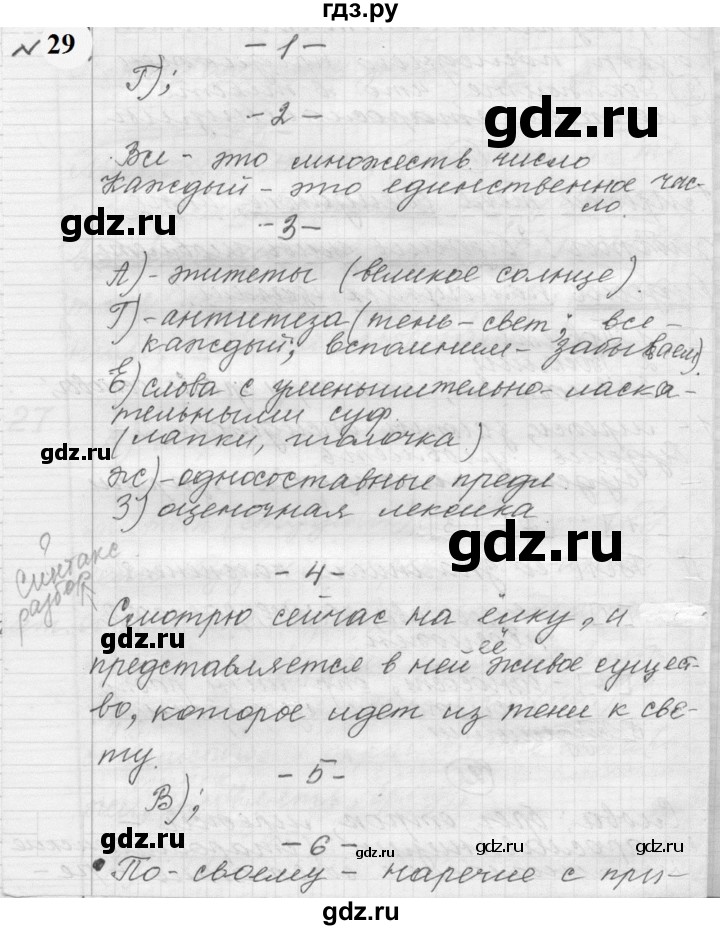 гдз.ру
№ 29
- 1 -
Г);
- 2 -
gdz.ru
Все - это множеств. число
Каждый - это единственное чис-
ло.
gdz.ru
- 3 -
А) - эпитеты (великое солнце).
gdz.ru
Г) - антитеза (тень - свет; все -
каждый; вспомним - забываем).
Е) слова с уменьшительно-ласка-
тельными суф.
(лапки, иголочка)
gdz.ru
Ж) - односоставные предл.
З) оценочная лексика
gdz.ru
?
Синтакс.
разбор
- 4 -
Смотрю сейчас на ёлку, и
gdz.ru
её
представляется в ней живое сущест-
во, которое идет из тени к све-
ту.
gdz.ru
- 5 -
В);
- 6 -
gdz.ru
По-своему - наречие с при-
gdz.ru